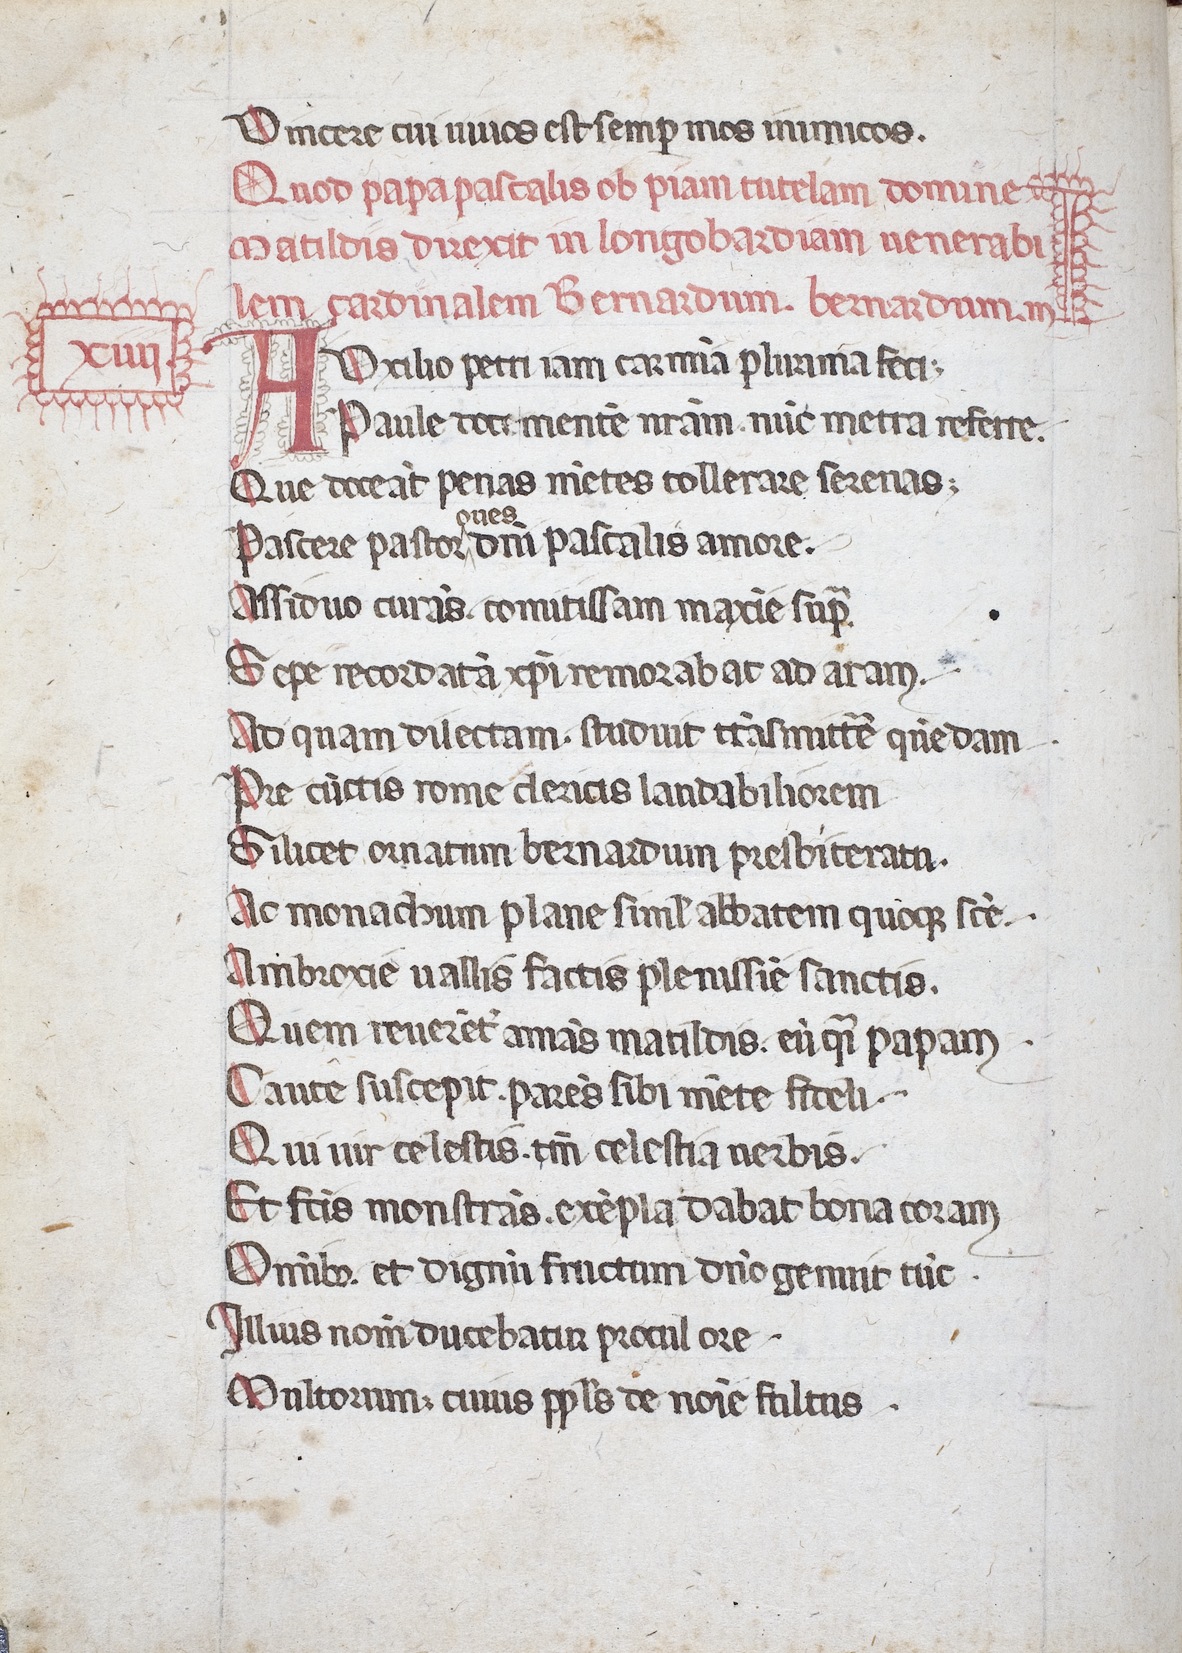 Vincere cui uiuos est semp mos inimicos.
Quod papa pascalis ob piam tutelam domine
Matildis direxit in longobardiam uenerabi
lem cardinalem Bernardum. bernardum. m
xiiij.
AUxilio petri iam carmĩa plurima feci;
Paule doce mentē nrām. nūc metra referre.
Que doceāt penas mētes tollerare serenas;
oues
Pascere pastor dñi pascalis amore.
Assiduo curās. comitissam maxīe sup̄.
Sepe recordatā xp̄i remorabat ad aram.
Ad quam dilectam. studuit trāsmittē quēdam
Pre cūctis rome clericis laudabiliorem
Silicet ornatum bernardum presbiteratu.
Ac monachum plane simĺ abbatem quoq; scē.
Ambroxie uallis factis plenissīe sanctis.
Quem reuerēt' amās matildis. eū qī papam
Caute suscepit. parēs sibi mēte fideli.
Qui uir celestis. tm̄ celestia uerbis.
Et fc̄is monstrās. exēpla dabat bona coram
Omīb;. et dignū fructum dn̄o genuit tūc.
Illius nom̄ ducebatur procul ore
Multorum; cuius ppl̄s de noīe fultus.